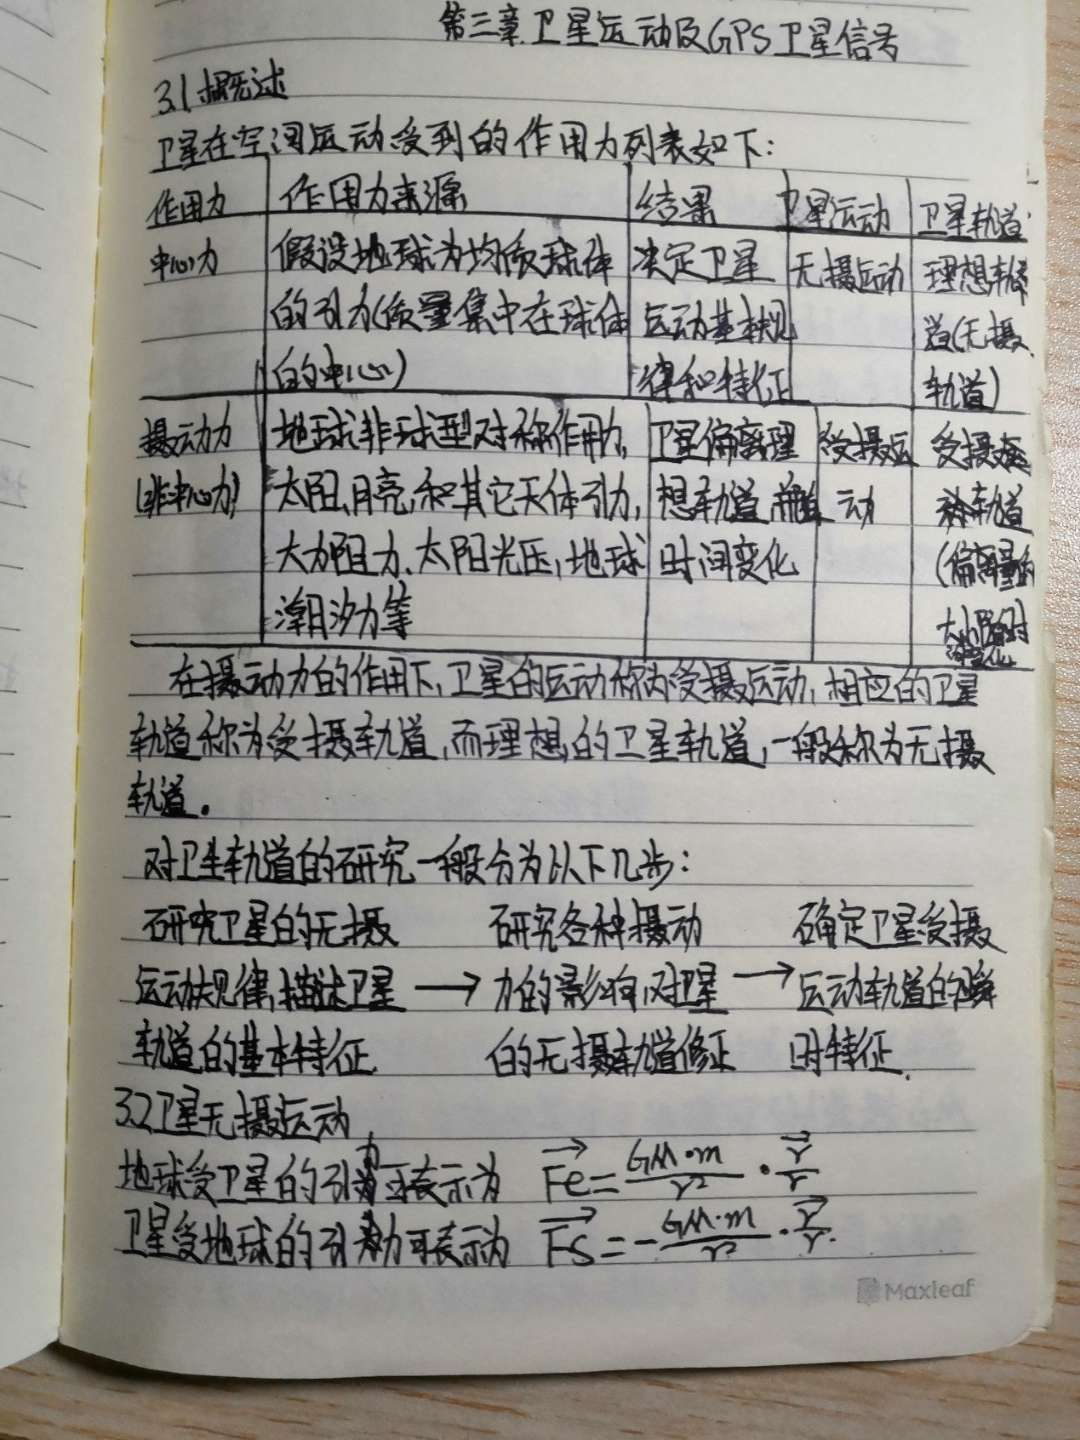 第三章.卫星运动及GPS卫星信号
3.1概述
卫星在空间运动受到的作用力列表如下:
作用力 作用力来源 结果 卫星运动 卫星轨道
中心力 假设地球为均质球体 决定卫星 无摄运动 理想轨
的引力(质量集中在球体 运动基本规 道(无摄
的中心) 律和特征 轨道)
摄动力 地球非球型对称作用力, 卫星偏离理 受摄运 受摄
(非中心力) 太阳、月亮,和其它天体引力, 想轨道, 动 轨道
大力阻力、太阳光压,地球 时间变化 (偏离量的
潮汐力等 大小随时
变化
在摄动力的作用下,卫星的运动称为受摄运动,相应的卫星
轨道称为受摄轨道,而理想的卫星轨道,一般称为无摄
轨道。
对卫生轨道的研究一般分为以下几步:
研究卫星的无摄 研究各种摄动 确定卫星受摄
运动规律,描述卫星 → 力的影响,对卫星 → 运动轨道的瞬
轨道的基本特征 的无摄轨道修正 时特征.
3.2卫星无摄运动
地球受卫星的引力可表示为 Fe=GM·m/r²·r/r
卫星受地球的引力可表示为 Fs=-GM·m/r²·r/r.
Maxleaf